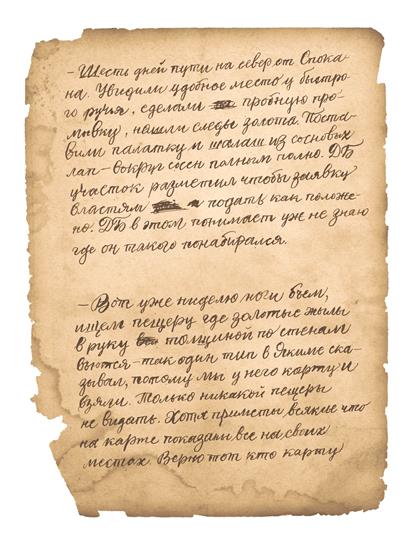 – Шесть дней пути на север от Спока-
на. Увидили удобное место у быстро-
го ручья, сделали пробную про-
мывку, нашли следы золота. Поста-
вили палатку и шалаш из сосновых
лап – вокруг сосен полным полно. ДБ
участок разметил чтобы заявку
властям подать как положе-
но. ДБ в этом понимает уж не знаю
где он такого понабирался.
– Вот уже ниделю ноги бьем,
ищем пещеру где золотые жилы
в руку толщиной по стенам
вьются – так один тип в Якиме ска-
зывал, потому мы у него карту и
взяли. Только никакой пещеры
не видать. Хотя приметы всякие что
на карте показаны все на своих
местах. Верно тот кто карту